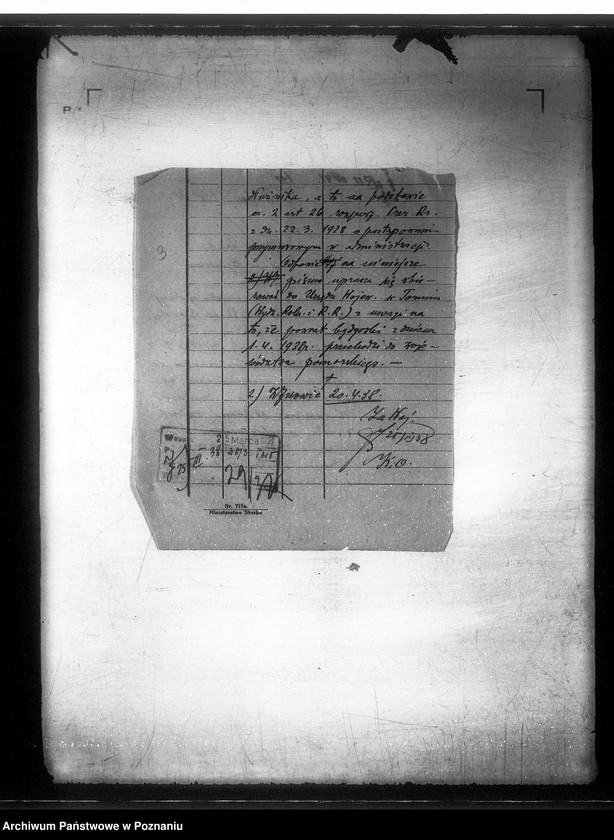 3
a to na podstawie
art 26 rozporz. Prez. Rz.
z dn. 22. 3. 1928 o postępowaniu
przymusowym w administracji.
Odpowiedź na niniejsze
pismo uprasza się
do Urzędu Wojew. w Toruniu
(Wydz. Roln. i R. R.) z uwagi na
to, że powiat bydgoski z dniem
1. 4. 1938 r. przechodzi do woje-
wództwa pomorskiego. —
2) Wznowić 20. 4. 38.
Za Woj.
K. O.
25 Marca
Nr. 713a.
Ministerstwo Skarbu
Archiwum Państwowe w Poznaniu